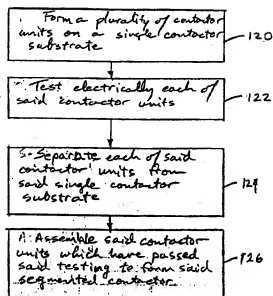 Form a plurality of contactor
units on a single contactor
substrate
120
Test electrically each of
said contactor units
122
Separate each of said
contactor units from
said single contactor
substrate
124
Assemble said contactor
units which have passed
said testing to form said
segmented contactor
126